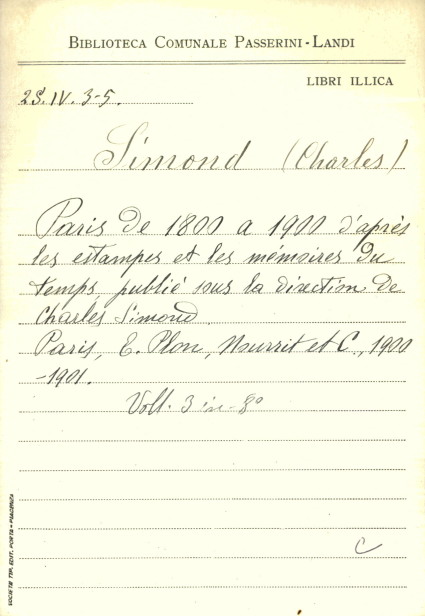 BIBLIOTECA COMUNALE PASSERINI-LANDI
LIBRI ILLICA
2S.IV.3-5.
Simond (Charles)
Paris de 1800 a 1900 d'après
les estampes et les mémoires du
temps, publié sous la direction de
Charles Simond.
Paris, E. Plon, Nourrit et C., 1900
-1901.
Voll. 3 in-8°
C
SOCIETÀ TIP. EDIT. PORTA - PIACENZA